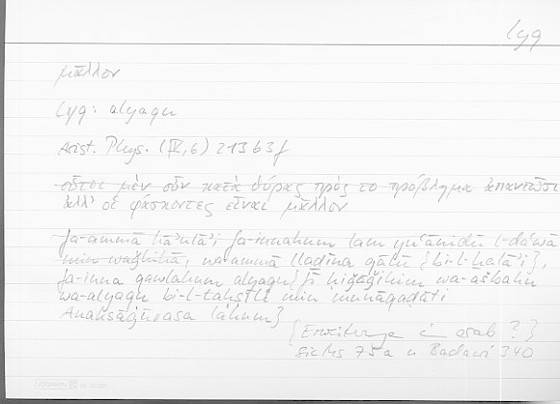 lyq
μᾶλλον
lyq: alyaqu
Arist. Phys. (IV,6) 213b3f
οὗτοι μὲν οὖν κατὰ θύρας πρὸς τὸ πρόβλημα ἀπαντῶσιν
ἀλλ' οἱ φάσκοντες εἶναι μᾶλλον
fa-ammā hā'ulā'i fa-innahum lam yu'ānidū l-da'wā
min waǧhihā, wa-ammā lladīna qālū {bi-l-halā'i},
fa-inna qawlahum alyaqu} fī ḥiǧāǧihim wa-ašbahu
wa-alyaqu bi-l-taḥṣīli min munāqaḍati
Anaksāǧūrasa lahum}
{Erweiterung i. arab?}
Siehe 75a u Badawi 340